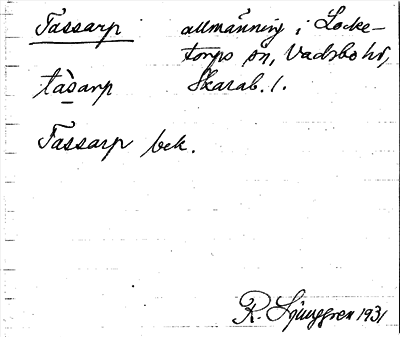 Tassarp allmänning i Locke-
torps sn, Vadsbo hd,
tàsarp Skarab. l.
Tassarp bek.
R. Ljunggren 1931